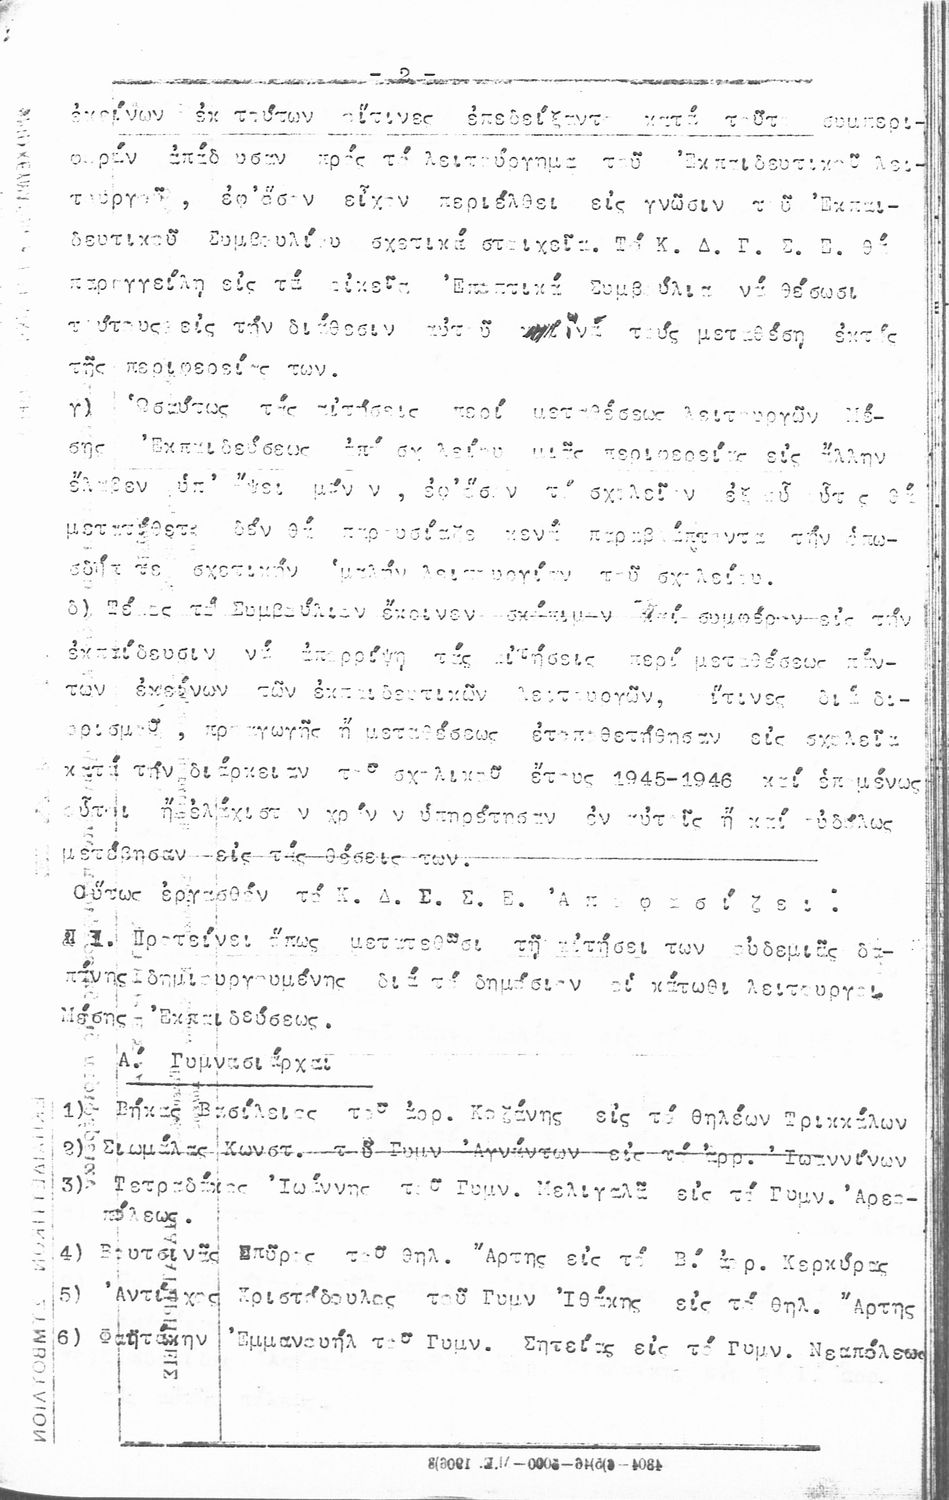 - 2 -
ἐκείνων ἐκ τούτων οἵτινες ἐπεδείξαντο κατά τοῦτο συμπερι-
φοράν ἀπάδουσαν πρός τό λειτούργημα τοῦ Ἐκπαιδευτικοῦ λει-
τουργοῦ, ἐφ'ὅσον εἶχον περιέλθει εἰς γνῶσιν τοῦ Ἐκπαι-
δευτικοῦ Συμβουλίου σχετικά στοιχεῖα. Τό Κ. Δ. Γ. Σ. Ε. θά
παραγγείλη εἰς τά οἰκεῖα Ἐποπτικά Συμβούλια νά θέσωσι
τούτους εἰς τήν διάθεσιν αὐτοῦ ἵνα τούς μεταθέση ἐκτός
τῆς περιφερείας των.
γ) Ὡσαύτως τάς αἰτήσεις περί μεταθέσεως λειτουργῶν Μέ-
σης Ἐκπαιδεύσεως ἀπό σχολείου μιᾶς περιφερείας εἰς ἄλλην
ἔλαβεν ὑπ' ὄψει μόνον, ἐφ'ὅσον τό σχολεῖον ἐξ οὗ οὗτος θά
μετατίθετο δέν θά παρουσίαζε κενά παραβλάπτοντα τήν ὁπω-
σδήποτε σχετικήν ὁμαλήν λειτουργίαν τοῦ σχολείου.
δ) Τέλος τό Συμβούλιον ἔκρινεν σκόπιμον καί συμφέρον εἰς τήν
ἐκπαίδευσιν νά ἀπορρίψη τάς αἰτήσεις περί μεταθέσεως πάν-
των ἐκείνων τῶν ἐκπαιδευτικῶν λειτουργῶν, οἵτινες διά δι-
ορισμοῦ, προαγωγῆς ἤ μεταθέσεως ἐτοποθετήθησαν εἰς σχολεῖα
κατά τήν διάρκειαν τοῦ σχολικοῦ ἔτους 1945-1946 καί ἑπομένως
οὗτοι ἤ ἐλάχιστον χρόνον ὑπηρέτησαν ἐν αὐτοῖς ἤ καί οὐδόλως
μετέβησαν εἰς τάς θέσεις των.
Οὕτως ἐργασθέν τό Κ. Δ. Σ. Σ. Ε. Ἀ π ο φ α σ ί ζ ε ι :
Ι. Προτείνει ὅπως μετατεθῶσι τῇ αἰτήσει των οὐδεμιᾶς δα-
πάνης δημιουργουμένης διά τό δημόσιον οἱ κάτωθι λειτουργοί
Μέσης Ἐκπαιδεύσεως.
Α.' Γυμνασιάρχαι
1) Βήκας Βασίλειος τοῦ ἀρρ. Κοζάνης εἰς τό θηλέων Τρικκάλων
2) Σιωμάλας Κωνστ. τοῦ Γυμν Ἀγνάντων εἰς τό ἀρρ. Ἰωαννίνων
3) Τετραδάκος Ἰωάννης τοῦ Γυμν. Μελιγαλᾶ εἰς τό Γυμν. Ἀρεο-
πόλεως.
4) Βουτσινᾶς Σπῦρος τοῦ θηλ. Ἄρτης εἰς τό Β.' ἀρρ. Κερκύρας
5) Ἀντίοχος Χριστόδουλος τοῦ Γυμν Ἰθάκης εἰς τό θηλ. Ἄρτης
6) Ἐμμανουήλ τοῦ Γυμν. Σητείας εἰς τό Γυμν. Νεαπόλεως